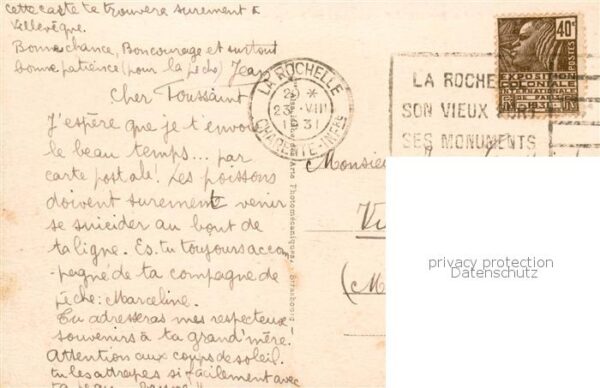 Cette carte te trouvera surement à
Villevêque.
Bonne chance, Bon courage et surtout
bonne patience (pour la pêche) Jean
Cher Toussaint
J'espère que je t'envoie
le beau temps... par
carte postale! Les poissons
doivent surement venir
se suicider au bout de
ta ligne. Es.tu toujours accom-
pagné de ta compagne de
pêche: Marceline.
Tu adresseras mes respectueux
souvenirs à ta grand'mère!
Attention aux coups de soleil.
tu les attrapes si facilement avec
ta peau
LA ROCHELLE
23-VIII
31
CHARENTE-INFRE
40c
POSTES
EXPOSITION
COLONIALE
LA ROCHE
SON VIEUX PORT
SES MONUMENTS
Arts Photomécaniques, Strasbourg
Monsieur
Vi
(M
privacy protection
Datenschutz